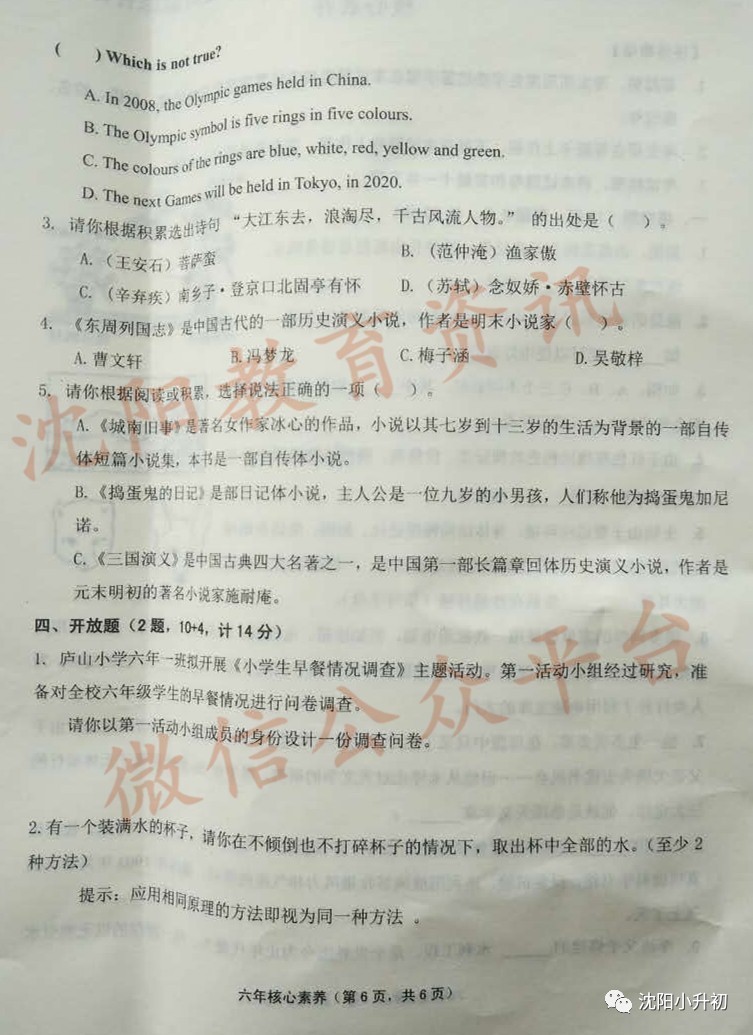 (    ) Which is not true?
A. In 2008, the Olympic games held in China.
B. The Olympic symbol is five rings in five colours.
C. The colours of the rings are blue, white, red, yellow and green.
D. The next Games will be held in Tokyo, in 2020.
3. 请你根据积累选出诗句“大江东去，浪淘尽，千古风流人物。” 的出处是（  ）。
A.（王安石）菩萨蛮 B.（范仲淹）渔家傲
C.（辛弃疾）南乡子·登京口北固亭有怀 D.（苏轼）念奴娇·赤壁怀古
4. 《东周列国志》是中国古代的一部历史演义小说，作者是明末小说家（  ）。
A. 曹文轩 B.冯梦龙 C.梅子涵 D.吴敬梓
5. 请你根据阅读或积累，选择说法正确的一项（  ）。
A.《城南旧事》是著名女作家冰心的作品，小说以其七岁到十三岁的生活为背景的一部自传
体短篇小说集，本书是一部自传体小说。
B.《捣蛋鬼的日记》是部日记体小说，主人公是一位九岁的小男孩，人们称他为捣蛋鬼加尼
诺。
C.《三国演义》是中国古典四大名著之一，是中国第一部长篇章回体历史演义小说，作者是
元末明初的著名小说家施耐庵。
四、开放题（2题，10+4，计14分）
1、庐山小学六年一班拟开展《小学生早餐情况调查》主题活动。第一活动小组经过研究，准
备对全校六年级学生的早餐情况进行问卷调查。
请你以第一活动小组成员的身份设计一份调查问卷。
2.有一个装满水的杯子，请你在不倾倒也不打碎杯子的情况下，取出杯中全部的水。（至少2
种方法）
提示：应用相同原理的方法即视为同一种方法 。
六年核心素养（第6页，共6页）
沈阳教育资讯
微信公众平台
沈阳小升初